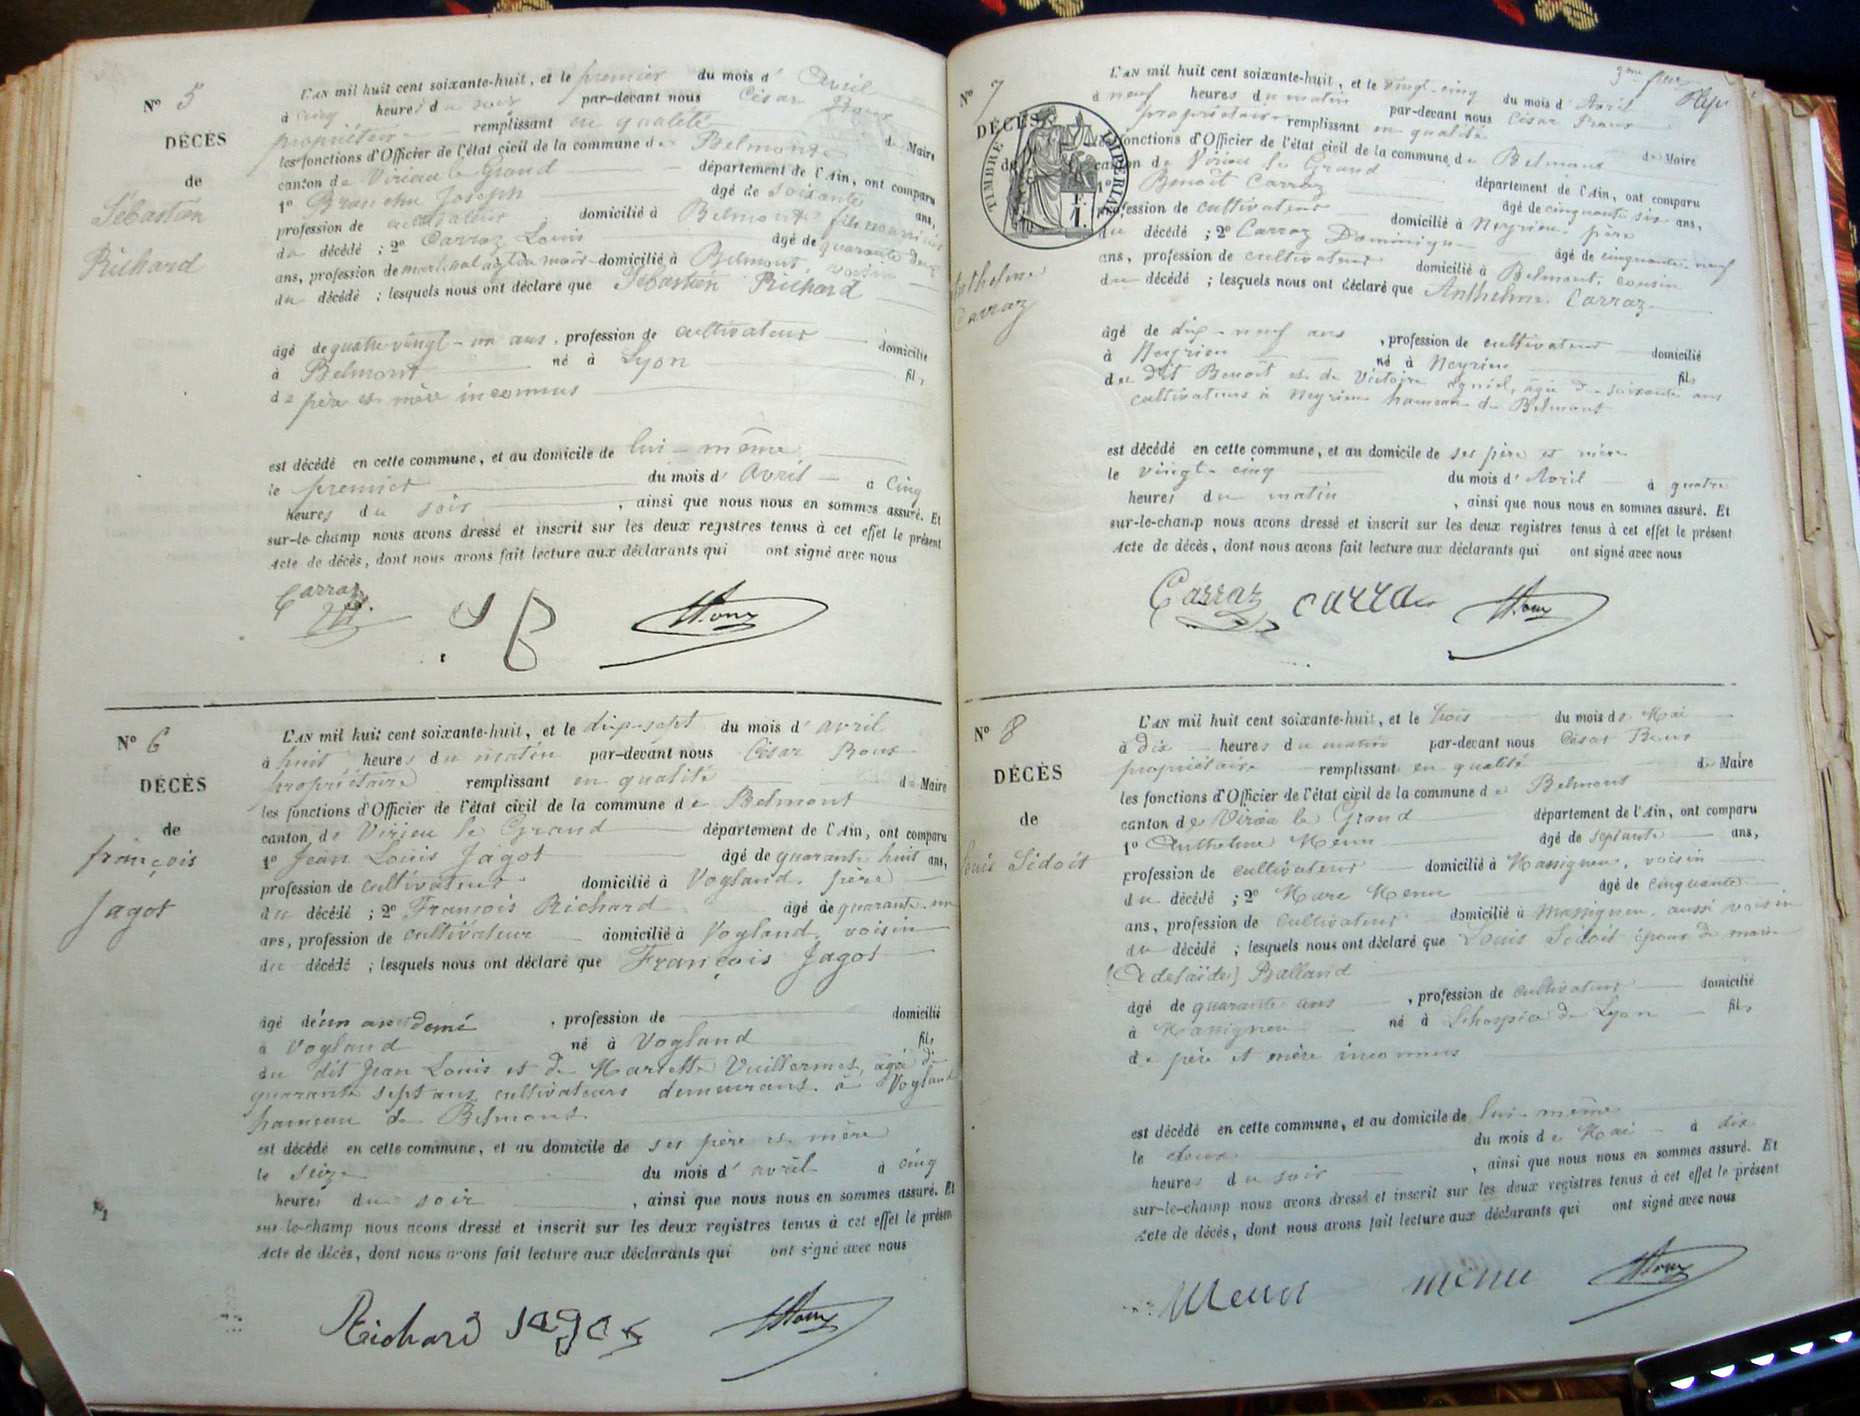 N° 5
DÉCÈS
de
Sébastien
Richard
L'AN mil huit cent soixante-huit, et le premier du mois d' Avril
à cinq heures du soir par-devant nous César Roux
propriétaire remplissant en qualité de Maire
les fonctions d'Officier de l'état civil de la commune de Belmont
canton de Virieu le Grand département de l'Ain, ont comparu
1° Branche Joseph âgé de soixante ans,
profession de cultivateur domicilié à Belmont
du décédé ; 2° Carraz Louis âgé de quarante deux
ans, profession de domicilié à Belmont, voisin
du décédé ; lesquels nous ont déclaré que Sébastien Richard
âgé de quatre vingt-un ans, profession de cultivateur domicilié
à Belmont né à Lyon fils
de père et mère inconnus
est décédé en cette commune, et au domicile de lui-même
le premier du mois d' Avril à cinq
heures du soir, ainsi que nous nous en sommes assuré. Et
sur-le champ nous avons dressé et inscrit sur les deux registres tenus à cet effet le présent
Acte de décès, dont nous avons fait lecture aux déclarants qui ont signé avec nous
Carraz
Roux
N° 6
DÉCÈS
de
françois
Jagot
L'AN mil huit cent soixante-huit, et le dix-sept du mois d' avril
à huit heures du matin par-devant nous César Roux
propriétaire remplissant en qualité de Maire
les fonctions d'Officier de l'état civil de la commune de Belmont
canton de Virieu le Grand département de l'Ain, ont comparu
1° Jean Louis Jagot âgé de quarante huit ans,
profession de cultivateur domicilié à Vogland, père
du décédé ; 2° François Richard âgé de quarante-un
ans, profession de cultivateur domicilié à Vogland, voisin
du décédé ; lesquels nous ont déclaré que François Jagot
âgé d'un an et demi, profession de domicilié
à Vogland né à Vogland fils
du dit Jean Louis et de Mariette Vuillermet, âgée de
quarante sept ans cultivateurs demeurant à Vogland
hameau de Belmont
est décédé en cette commune, et au domicile de ses père et mère
le seize du mois d' avril à cinq
heures du soir, ainsi que nous nous en sommes assuré. Et
sur-le-champ nous avons dressé et inscrit sur les deux registres tenus à cet effet le présent
Acte de décès, dont nous avons fait lecture aux déclarants qui ont signé avec nous
Richard Jagot Roux
N° 7
DÉCÈS
de
TIMBRE IMPÉRIAL
1 F.
Anthelme
Carraz
L'AN mil huit cent soixante-huit, et le vingt-cinq du mois d' Avril
à neuf heures du matin par-devant nous César Roux
propriétaire remplissant en qualité de Maire
les fonctions d'Officier de l'état civil de la commune de Belmont
canton de Virieu le Grand département de l'Ain, ont comparu
1° Benoît Carraz âgé de cinquante six ans,
profession de cultivateur domicilié à Neyrieu père
du décédé ; 2° Carraz Dominique âgé de cinquante-neuf
ans, profession de cultivateur domicilié à Belmont, cousin
du décédé ; lesquels nous ont déclaré que Anthelme Carraz
âgé de dix-neuf ans, profession de cultivateur domicilié
à Neyrieu né à Neyrieu fils
du dit Benoît et de Victoire âgée de soixante ans
cultivateurs à Neyrieu hameau de Belmont
est décédé en cette commune, et au domicile de ses père et mère
le vingt-cinq du mois d' Avril à quatre
heures du matin, ainsi que nous nous en sommes assuré. Et
sur-le-champ nous avons dressé et inscrit sur les deux registres tenus à cet effet le présent
Acte de décès, dont nous avons fait lecture aux déclarants qui ont signé avec nous
Carraz Carraz Roux
N° 8
DÉCÈS
de
Louis Sidoit
L'AN mil huit cent soixante-huit, et le trois du mois de Mai
à dix heures du matin par-devant nous César Roux
propriétaire remplissant en qualité de Maire
les fonctions d'Officier de l'état civil de la commune de Belmont
canton de Virieu le Grand département de l'Ain, ont comparu
1° Anthelme Menu âgé de septante ans,
profession de cultivateur domicilié à Massignieu, voisin
du décédé ; 2° Marc Menu âgé de cinquante
ans, profession de cultivateur domicilié à Massignieu, aussi voisin
du décédé ; lesquels nous ont déclaré que Louis Sidoit époux de marie
(Adelaïde) Balland
âgé de quarante ans, profession de cultivateur domicilié
à Massignieu né à L'hospice de Lyon fils
de père et mère inconnus
est décédé en cette commune, et au domicile de lui-même
le deux du mois de Mai à dix
heures du soir, ainsi que nous nous en sommes assuré. Et
sur-le-champ nous avons dressé et inscrit sur les deux registres tenus à cet effet le présent
Acte de décès, dont nous avons fait lecture aux déclarants qui ont signé avec nous
Menu menu Roux